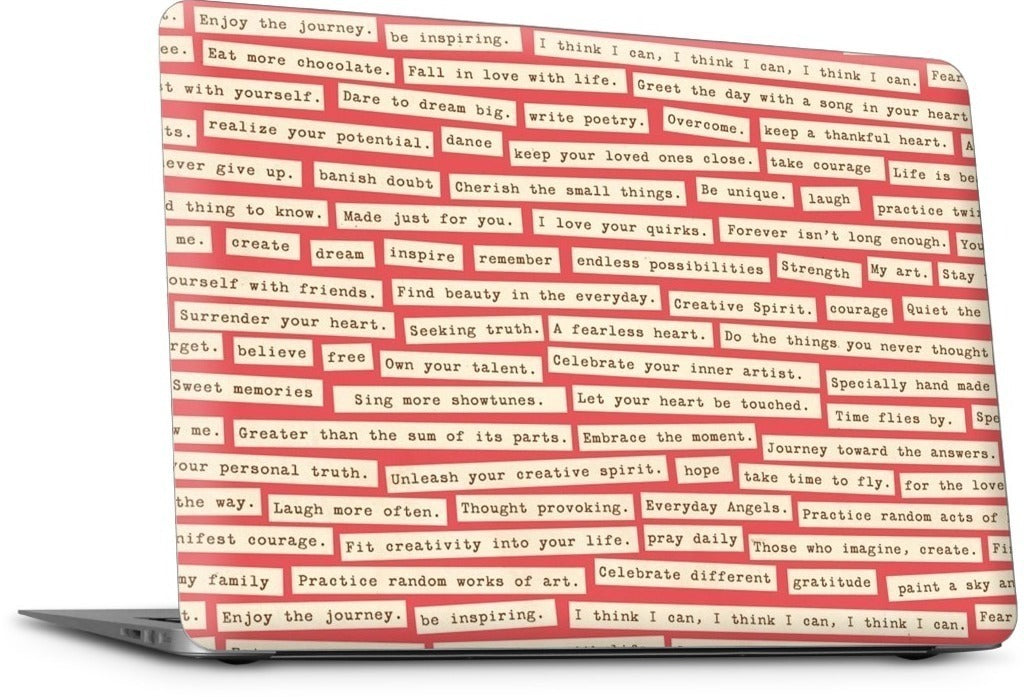 t. Enjoy the journey. be inspiring. I think I can, I think I can, I think I can. Fear
ee. Eat more chocolate. Fall in love with life. Greet the day with a song in your heart
t with yourself. Dare to dream big. write poetry. Overcome. keep a thankful heart. A
ts. realize your potential. dance keep your loved ones close. take courage Life is be
ever give up. banish doubt Cherish the small things. Be unique. laugh practice twi
d thing to know. Made just for you. I love your quirks. Forever isn't long enough. You
me. create dream inspire remember endless possibilities Strength My art. Stay
ourself with friends. Find beauty in the everyday. Creative Spirit. courage Quiet the
Surrender your heart. Seeking truth. A fearless heart. Do the things you never thought
rget. believe free Own your talent. Celebrate your inner artist. Specially hand made
Sweet memories Sing more showtunes. Let your heart be touched. Time flies by. Spe
w me. Greater than the sum of its parts. Embrace the moment. Journey toward the answers.
our personal truth. Unleash your creative spirit. hope take time to fly. for the love
the way. Laugh more often. Thought provoking. Everyday Angels. Practice random acts of
nifest courage. Fit creativity into your life. pray daily Those who imagine, create. Fi
my family Practice random works of art. Celebrate different gratitude paint a sky an
t. Enjoy the journey. be inspiring. I think I can, I think I can, I think I can. Fear